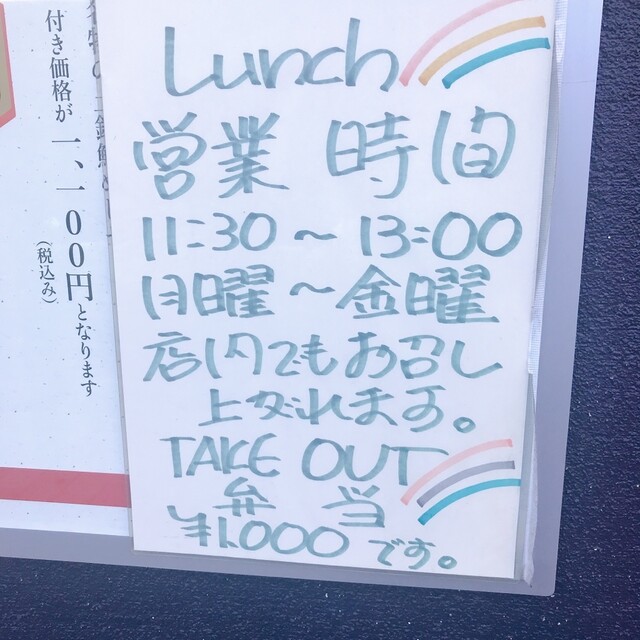 Lunch
営業 時間
11:30～13:00
月曜～金曜
店内でもお召し
上がれます。
TAKE OUT
弁 当
¥1,000です。
付き価格が一、一〇〇円となります
(税込み)